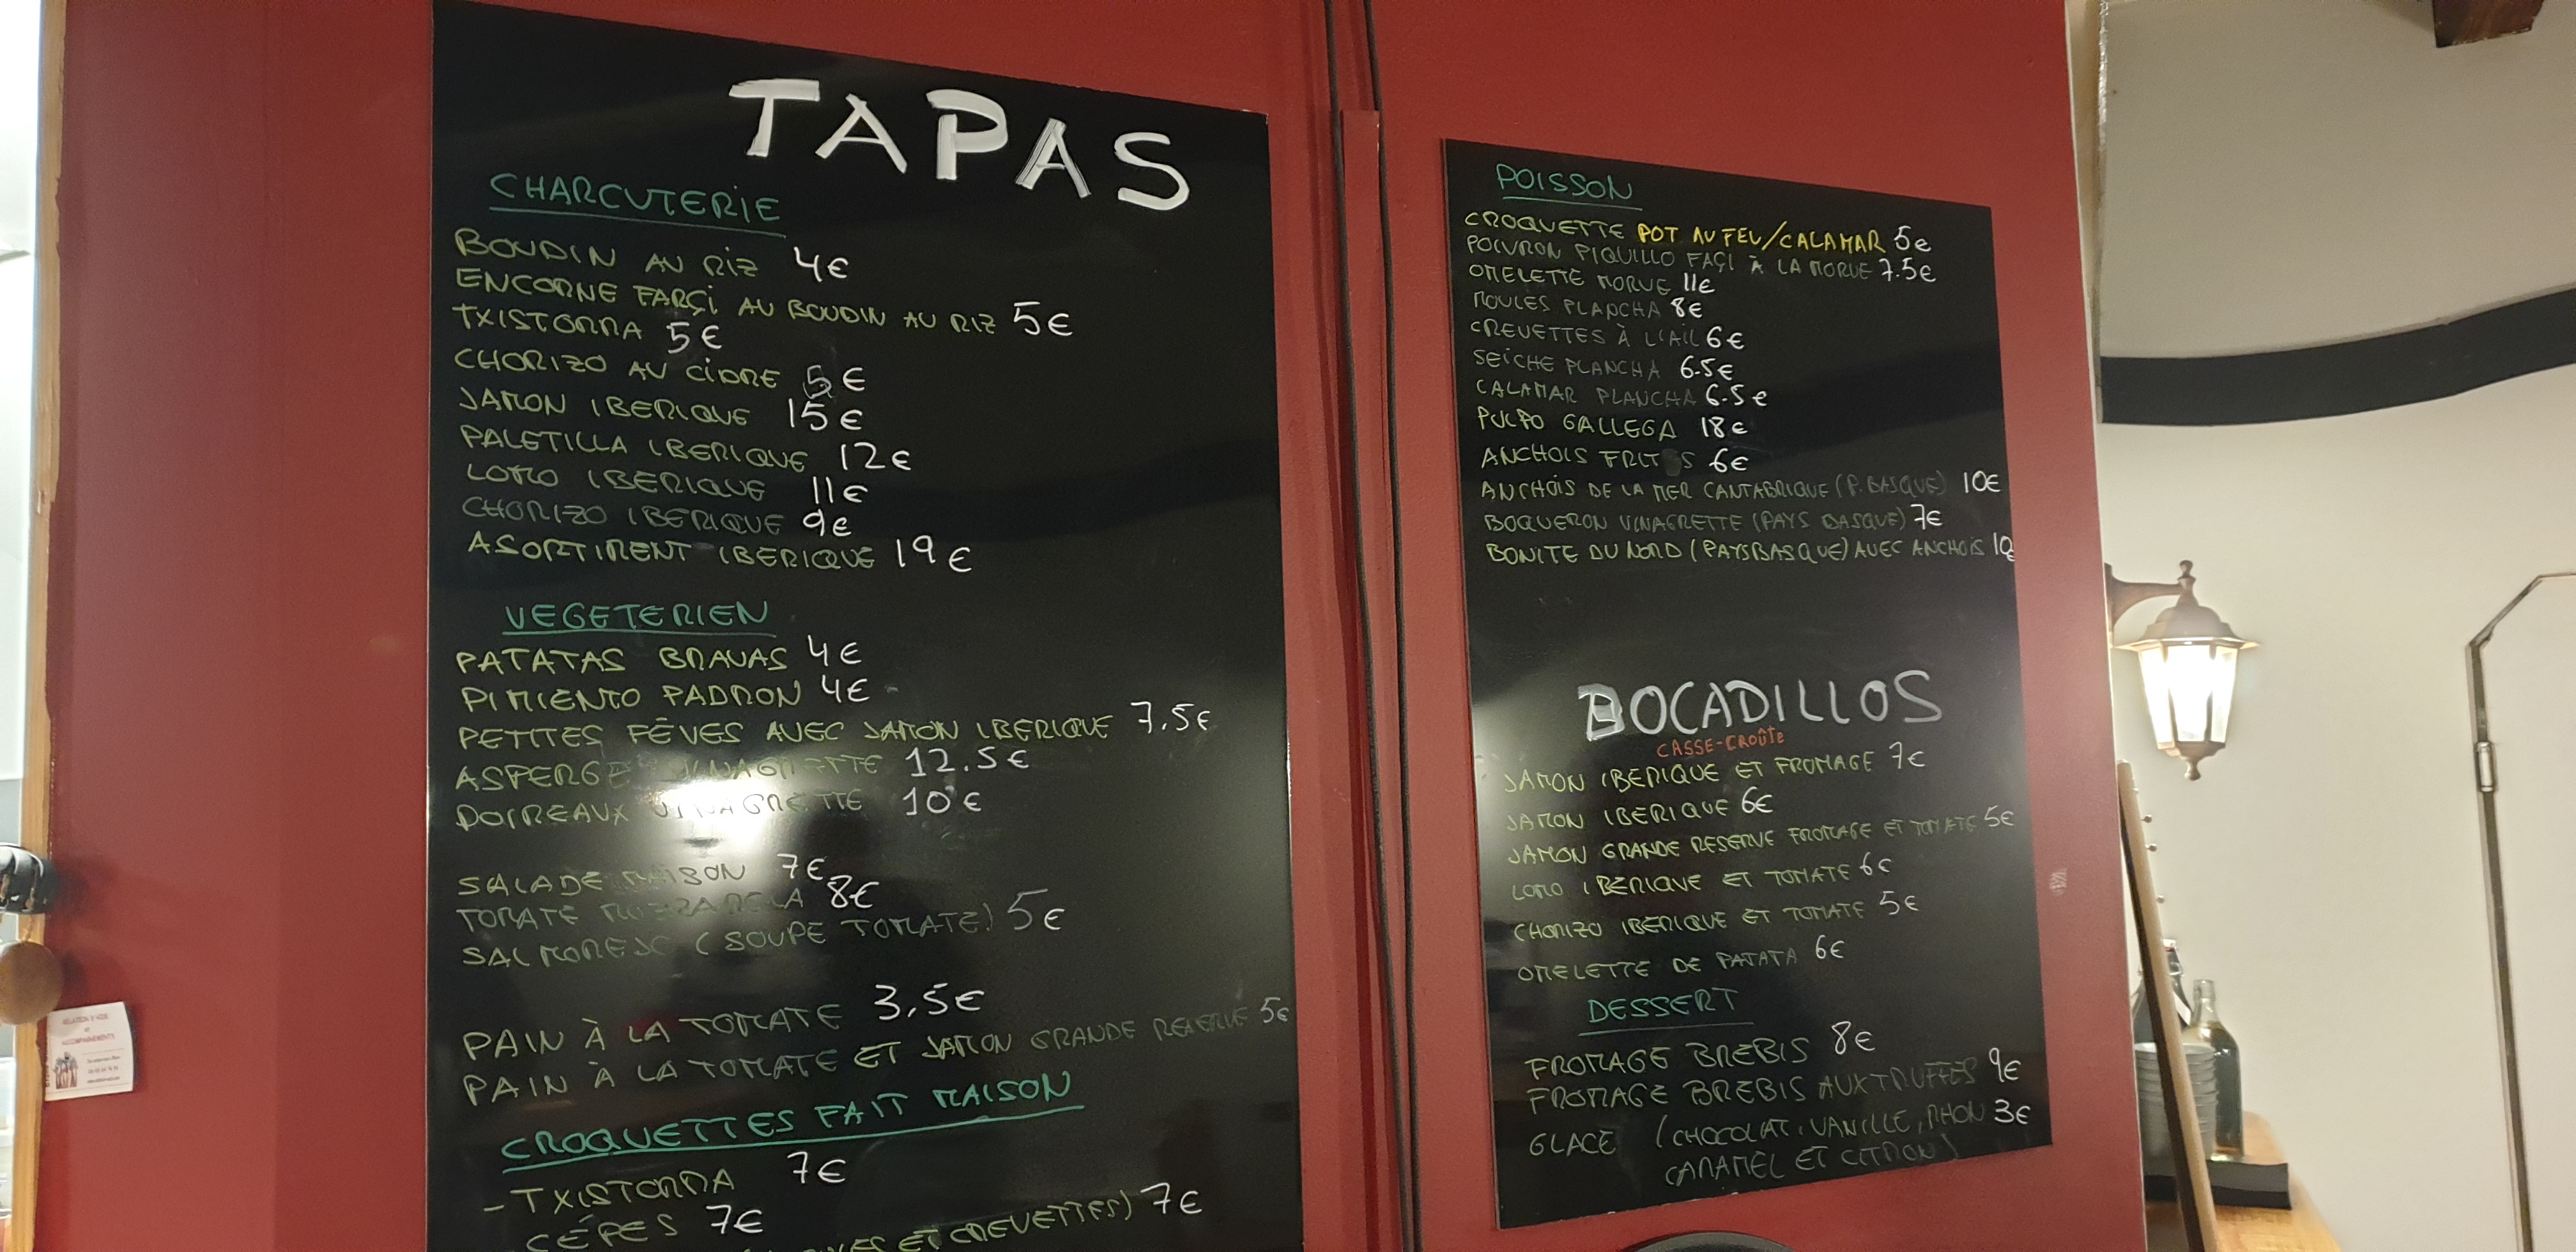 TAPAS
CHARCUTERIE
BOUDIN AU RIZ 4€
ENCORNE FARÇI AU BOUDIN AU RIZ 5€
TXISTORRA 5€
CHORIZO AU CIDRE 5€
JAMON IBERIQUE 15€
PALETILLA IBERIQUE 12€
LOMO IBERIQUE 11€
CHORIZO IBERIQUE 9€
ASORTIMENT IBERIQUE 19€
VEGETERIEN
PATATAS BRAVAS 4€
PIMIENTO PADRON 4€
PETITES FÊVES AVEC JAMON IBERIQUE 7.5€
ASPERGE VINAGRETTE 12.5€
POIREAUX VINAGRETTE 10€
SALADE MAISON 7€
TOMATE MOZZARELA 8€
SALMOREJO (SOUPE TOMATE) 5€
PAIN À LA TOMATE 3,5€
PAIN À LA TOMATE ET JAMON GRANDE RESERVE 5€
CROQUETTES FAIT MAISON
-TXISTORRA 7€
CÉPES 7€
ET CREVETTES) 7€
POISSON
CROQUETTE POT AU FEU/CALAMAR 5€
POIVRON PIQUILLO FAÇI À LA MORUE 7.5€
OMELETTE MORUE 11€
MOULES PLANCHA 8€
CREVETTES À L'AIL 6€
SEICHE PLANCHA 6.5€
CALAMAR PLANCHA 6.5€
PULPO GALLEGA 18€
ANCHOIS FRITS 6€
ANCHOIS DE LA MER CANTABRIQUE (P. BASQUE) 10€
BOQUERON VINAGRETTE (PAYS BASQUE) 7€
BONITE DU NORD (PAYS BASQUE) AVEC ANCHOIS 10
BOCADILLOS
CASSE-CROÛTE
JAMON IBERIQUE ET FROMAGE 7€
JAMON IBERIQUE 6€
JAMON GRANDE RESERVE FROMAGE ET TOMATE 5€
LOMO IBERIQUE ET TOMATE 6€
CHORIZO IBERIQUE ET TOMATE 5€
OMELETTE DE PATATA 6€
DESSERT
FROMAGE BREBIS 8€
FROMAGE BREBIS AUX TRUFFES 9€
GLACE (CHOCOLAT, VANILLE, RHON 3€
CARAMEL ET CITRON)